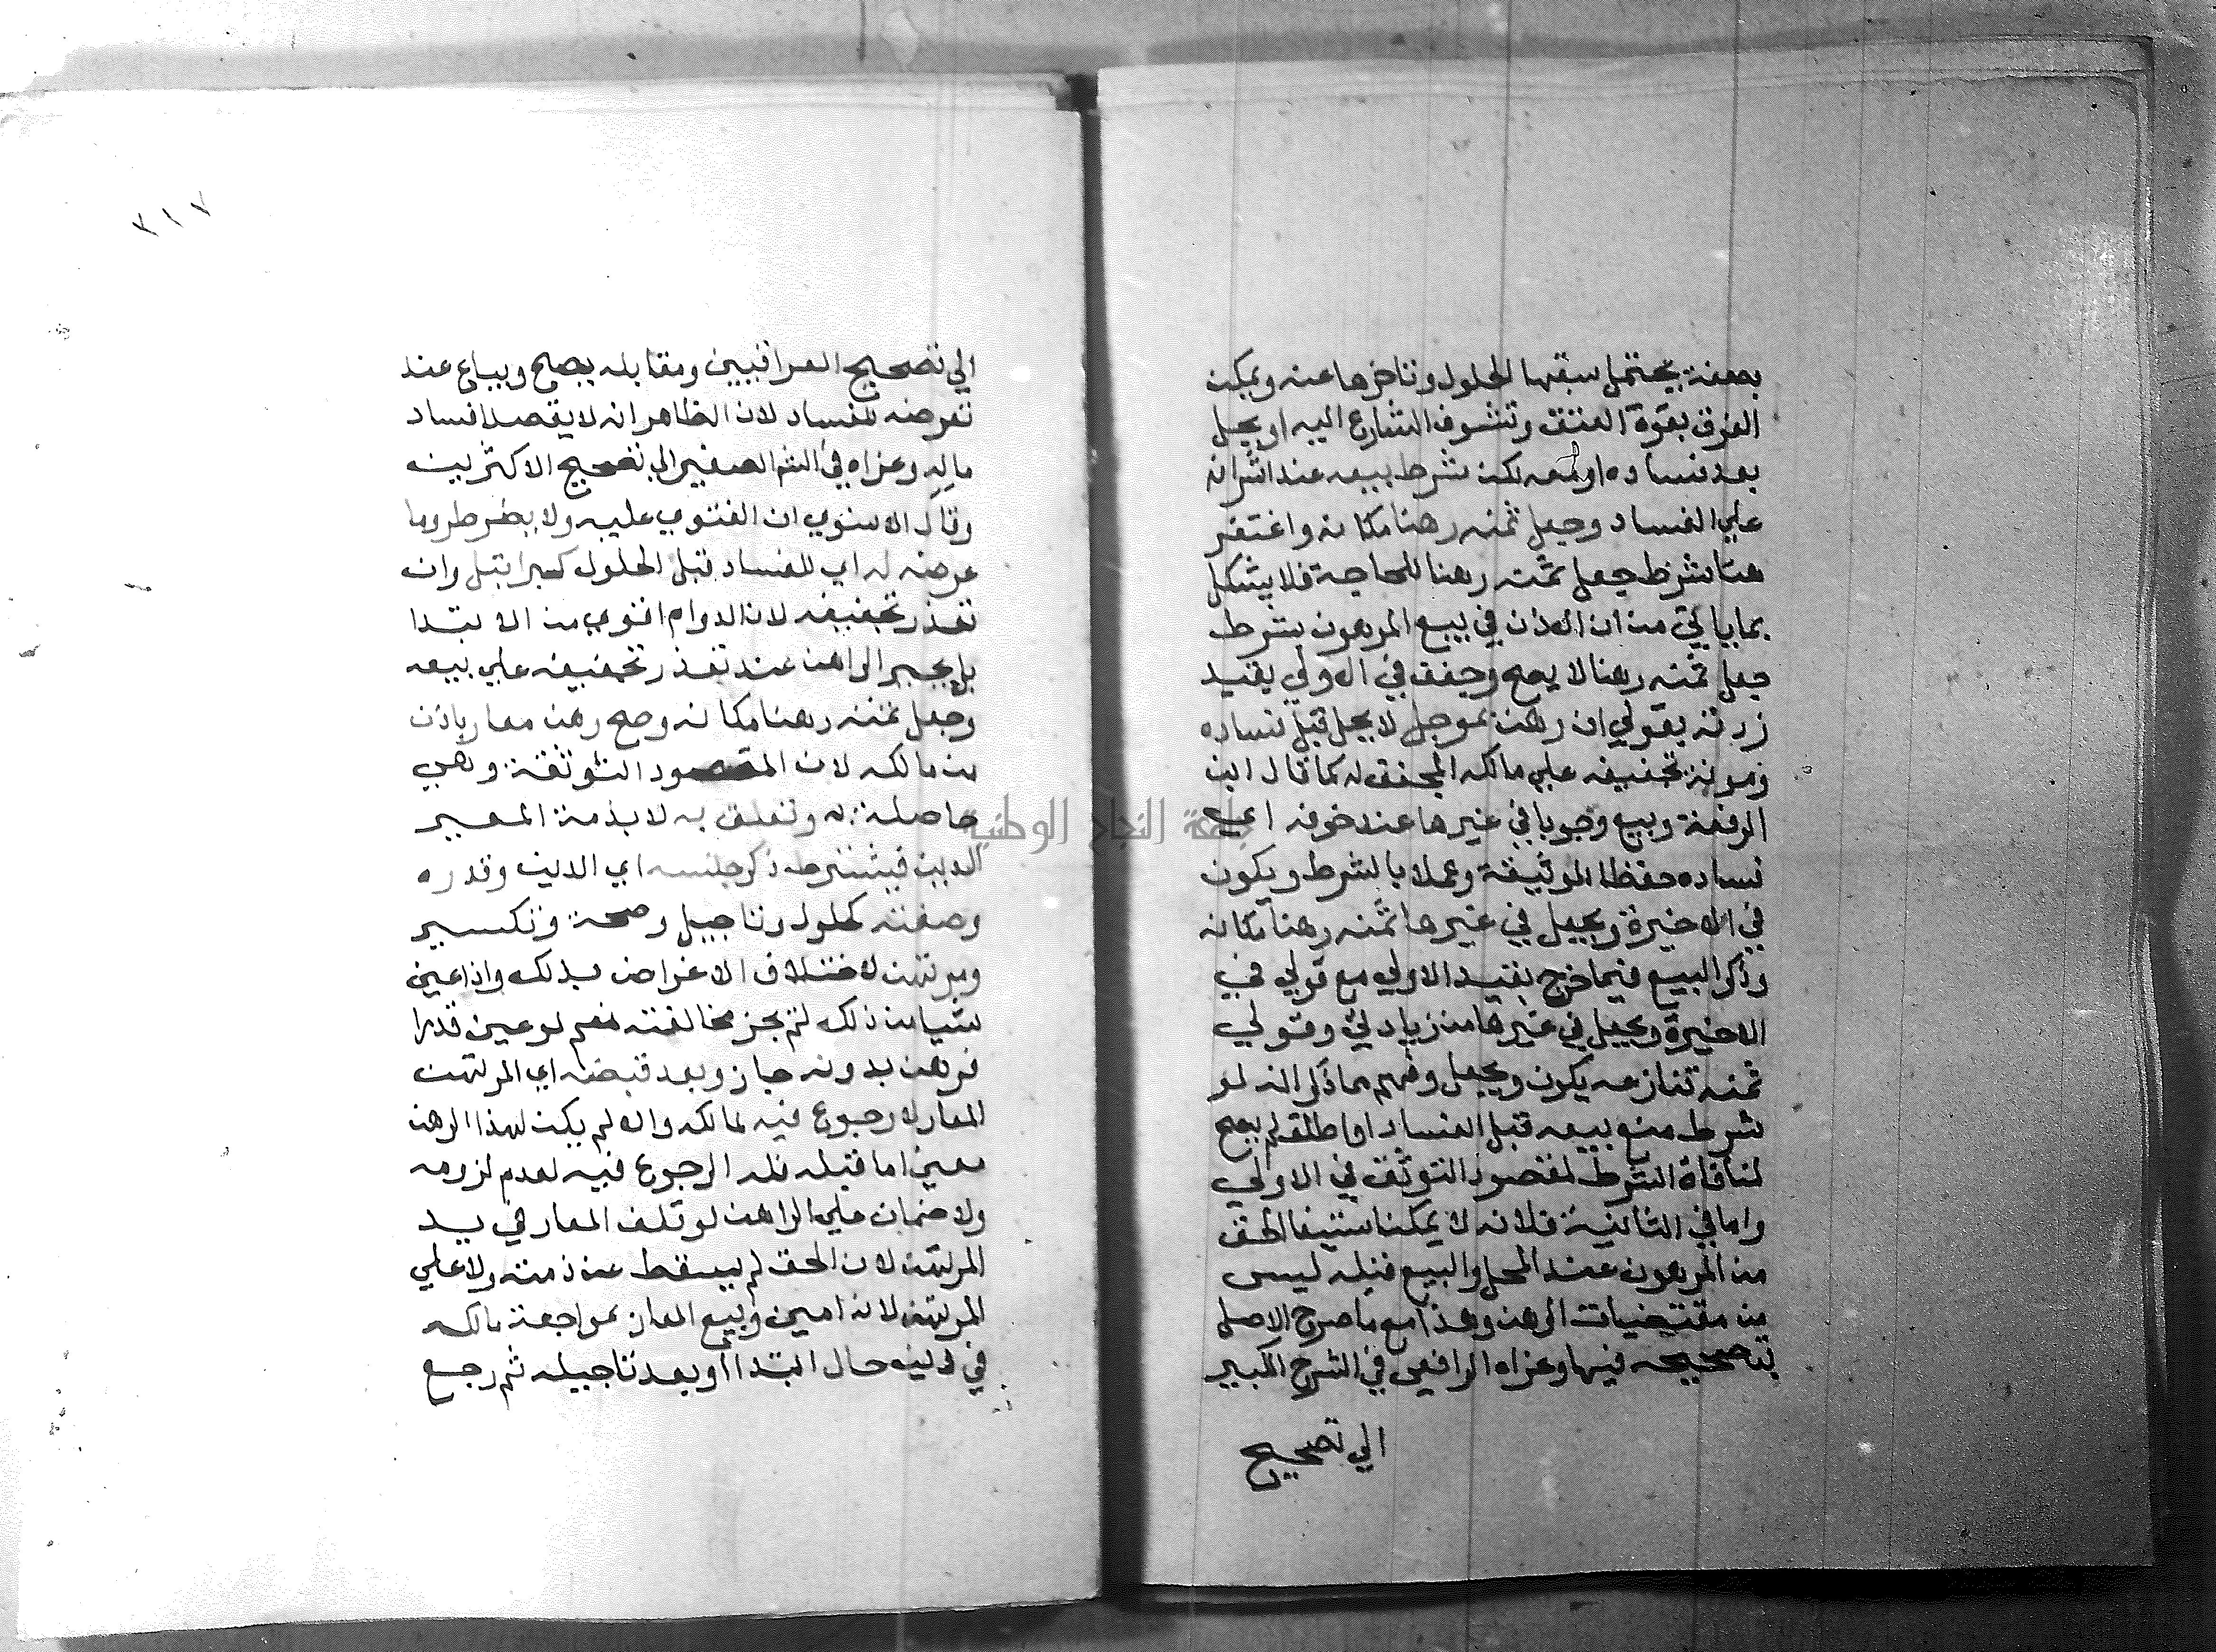 بصفة يحتمل سبقها الحلول وتاخرها عنه ويمكن
الفرق بقوة العتق وتشوف الشارع اليه او يحل
بعد فساده او معه لكن بشرط بيعه عند اشرافه
علي الفساد وجعل ثمنه رهنا مكانه واغتفر
هنا شرط جعل ثمنه رهنا للحاجة فلا يشكل
بما ياتي من ان الاذن في بيع المرهون بشرط
جعل ثمنه رهنا لا يصح وجفف في الاولي بقيد
زدته بقولي ان رهن بموجل لا يحل قبل فساده
ومونة تجفيفه علي مالكه المجفف له كما قال ابن
الرفعة وبيع وجوبا في غيرها عند خوفه اي
فساده حفظا للوثيقة وعملا بالشرط ويكون
في الاخيرة ويجعل في غيرها ثمنه رهنا مكانه
وذكر البيع فيما خرج بقيد الاولي مع قولي في
الاخيرة ويجعل في غيرها من زيادتي وقولي
ثمنه تنازعه يكون ويجعل وفهم مما ذكر انه لو
شرط منع بيعه قبل الفساد او اطلق لم يصح
لمنافاة الشرط لمقصود التوثق في الاولي
واما في الثانية فلانه لا يمكن استيفا الحق
من المرهون عند المحل والبيع قبله ليس
من مقتضيات الرهن وهذا مع ما صرح الاصل
بتصحيحه فيها وعزاه الرافعي في الشرح الكبير
الي تصحيح
٣١٧
الي تصحيح العراقيين ومقابله يصح ويباع عند
تعرضه للفساد لان الظاهر انه لا يقصد فساد
ماله وعزاه في الشرح الصغير الي تصحيح الاكثرين
وقال الاسنوي ان الفتوي عليه ولا يضر طرو ما
عرضه له اي للفساد قبل الحلول كبر ابتل وان
تعذر تجفيفه لان الدوام اقوي من الابتدا
بل يجبر الراهن عند تعذر تجفيفه علي بيعه
وجعل ثمنه رهنا مكانه وصح رهن معار باذن
من مالكه لان المقصود التوثقة وهي
حاصلة به وتعلق به لا بذمة المعير
الدين فيشترط ذكر جنسه اي الدين وقدره
وصفته كحلول وتاجيل وصحة وتكسير
ومرتهن لاختلاف الاغراض بذلك واذا عين
شيا من ذلك لم يجز مخالفته نعم لو عين قدرا
فرهن بدونه جاز وبعد قبضه اي المرتهن
المعار لا رجوع فيه لمالكه والا لم يكن لهذا الرهن
معين اما قبله فله الرجوع فيه لعدم لزومه
ولا ضمان علي الراهن لو تلف المعار في يد
المرتهن لان الحق لم يسقط عن ذمته ولا علي
المرتهن لانه امين وبيع المعار بمراجعة مالكه
في دينه حال ابتدا او بعد تاجيله ثم رجع
جامعة النجاح الوطنية